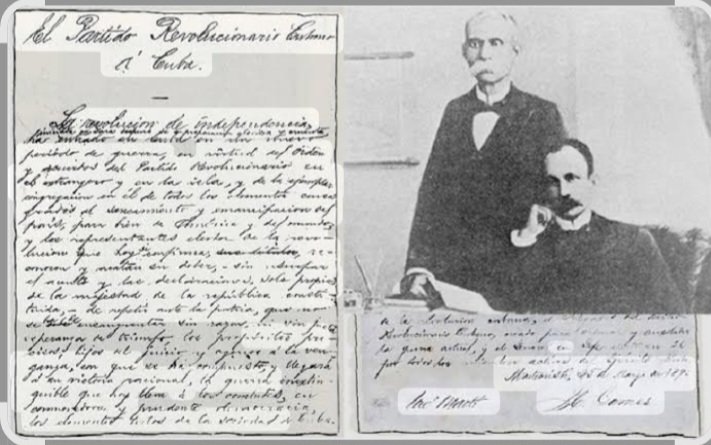 El Partido Revolucionario Cubano
A' Cuba.
La revolución de independencia,
ha entrado en Cuba en un nuevo
período de guerra, en virtud del orden
y acuerdos del Partido Revolucionario en
el extrangero y en la isla, y de la ejemplar
congregación en él de todos los elementos consa-
grados al saneamiento y emancipación del
país, para bien de América y del mundo;
y los representantes electos de la revo-
lucion que hoy se confirma, reco-
nocen y acatan su deber, - sin usurpar
el acento y las declaraciones sólo propias
de la majestad de la república consti-
tuida, - de repetir ante la patria, que no
se ensangrentar sin razon, ni sin justa
esperanza de triunfo, los propósitos pre-
cisos, hijos del juicio y agenos a la ven-
ganza, con que se ha compuesto, y llegará
a su victoria racional, la guerra inextin-
guible que hoy lleva á los combates, en
conmovedora y prudente democracia,
los elementos todos de la sociedad de Cuba.
de la
Revolucionario Cubano, creado para ordenar y auxiliar
la guerra actual,
por todos los
Montecristi, 25 de Marzo de 1895
José Martí
M. Gomez